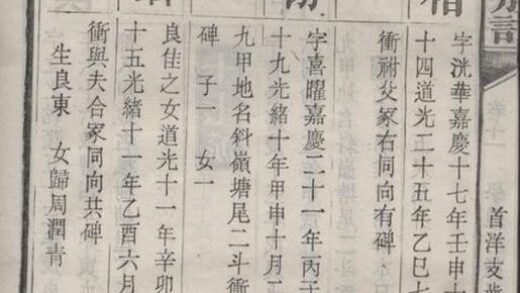 首洋支
字洸華嘉慶十七年壬申十
十四道光二十五年乙巳七
衝祔父冢右同向有碑
字喜曜嘉慶二十一年丙子
十九光緒十年甲申十月二
九甲地名斜嶺塘尾二斗衝
碑 子一 女一
良佳之女道光十一年辛卯
十五光緒十一年乙酉六月
衝與夫合冢同向共碑
生良東 女歸周潤青